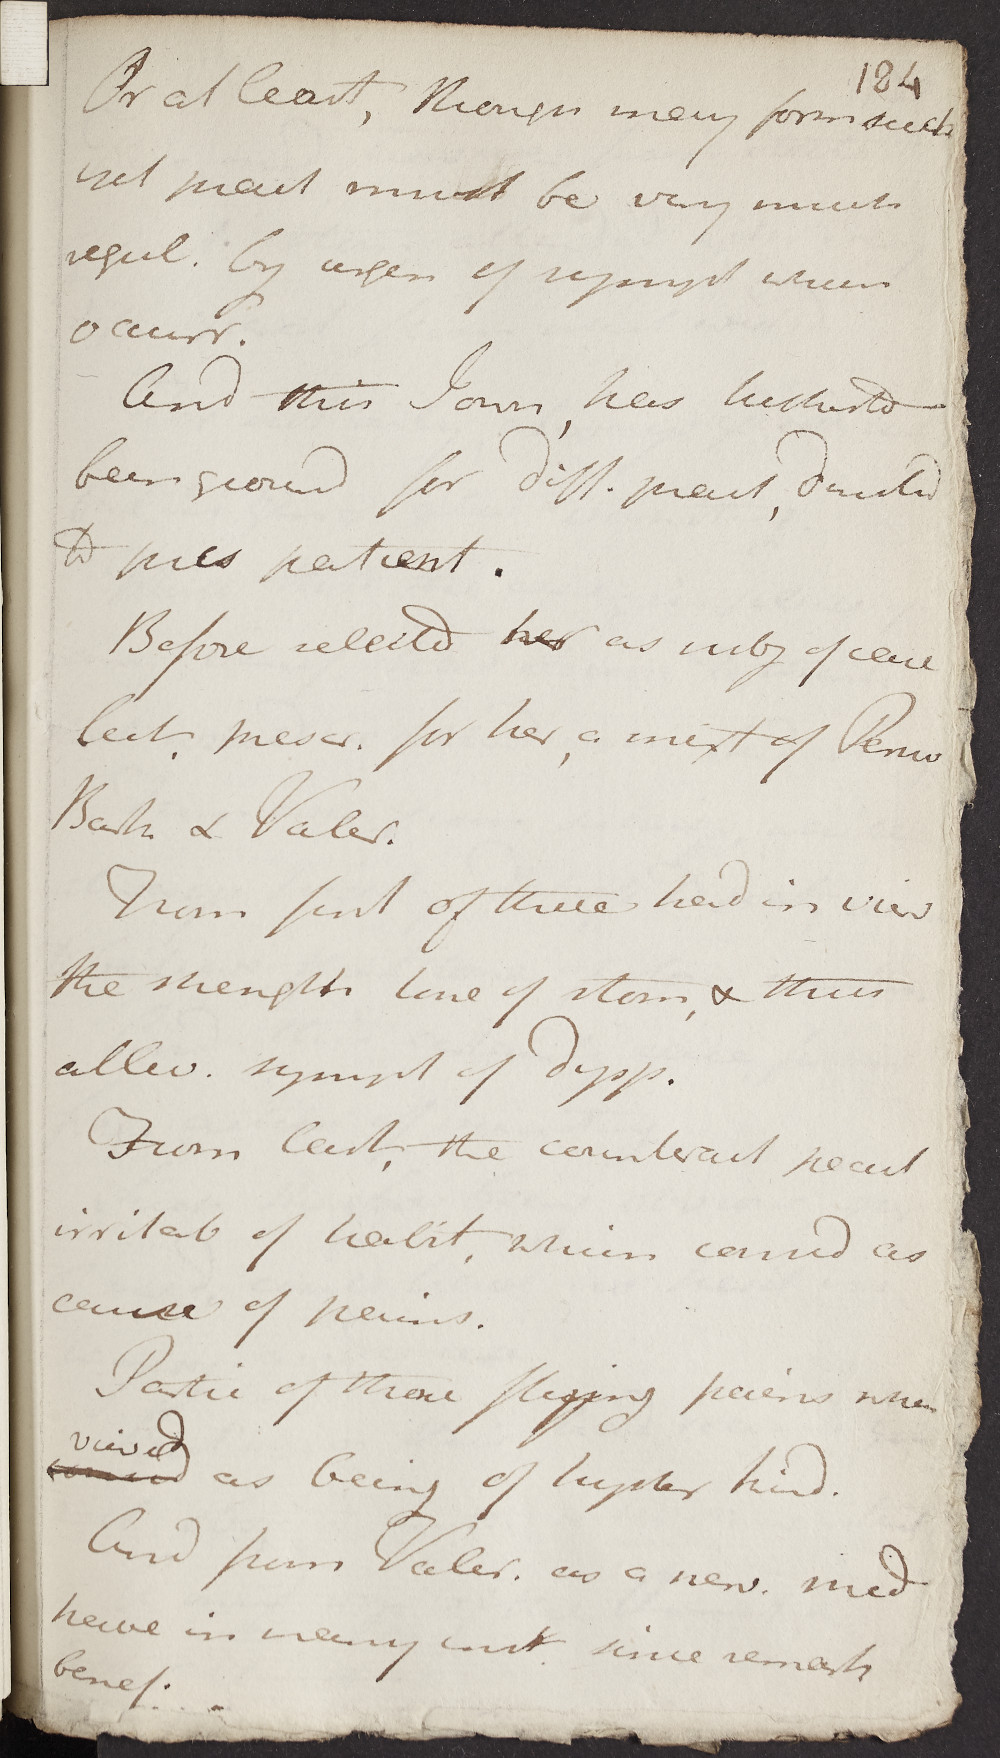 184
Or at least, though many form such
yet pract must be very much
regul. by urgen of sympt when
occurr.
And this I own, has hitherto
been ground for diff. pract, directed
to pres patient.
Before selected her as subj of case
lect. prescr. for her, a mixt of Peruv
Bark & Valer.
From first of these had in view
the strength tone of stom, & thus
allev. sympt of dysp.
From last, the counteract pecul
irritab of habit, which considd as
cause of pains.
Partic of those flying pains when
viewed
considd as being of hyster kind.
And from Valer. as a nerv. med
have in many inst. since remark
benef. . .